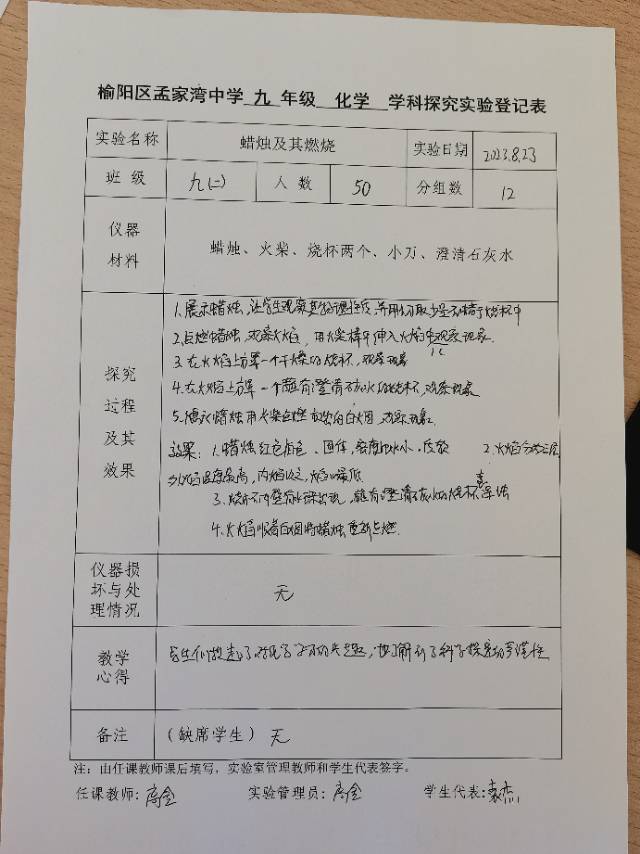 榆阳区孟家湾中学 九 年级 化学 学科探究实验登记表
实验名称 蜡烛及其燃烧 实验日期 2023.8.23
班级 九(二) 人数 50 分组数 12
仪器材料 蜡烛、火柴、烧杯两个、小刀、澄清石灰水
探究过程及其效果
1.展示蜡烛,让学生观察其物理性质,并用小刀取少量石蜡于烧杯中
2.点燃蜡烛,观察火焰,用火柴梗平伸入火焰中观察现象.
1s
3.在火焰上方罩一个干燥的烧杯,观察现象
4.在火焰上方罩一个蘸有澄清石灰水的烧杯,观察现象
5.熄灭蜡烛用火柴点燃 的白烟,观察现象.
效果: 1.蜡烛 红色 固体,密度比水小, 2.火焰分为三层
外焰温度最高,内焰次之,焰心最低
3.烧杯 有水 出现,蘸有澄清石灰水的烧杯 浑浊
4.火焰 着白烟将蜡烛重新点燃.
仪器损坏与处理情况 无
教学心得 学生们 了对化学 的兴趣, 了解 了科学探究的 性
备注 (缺席学生) 无
注:由任课教师课后填写,实验室管理教师和学生代表签字。
任课教师: 高 实验管理员: 高 学生代表: 袁杰